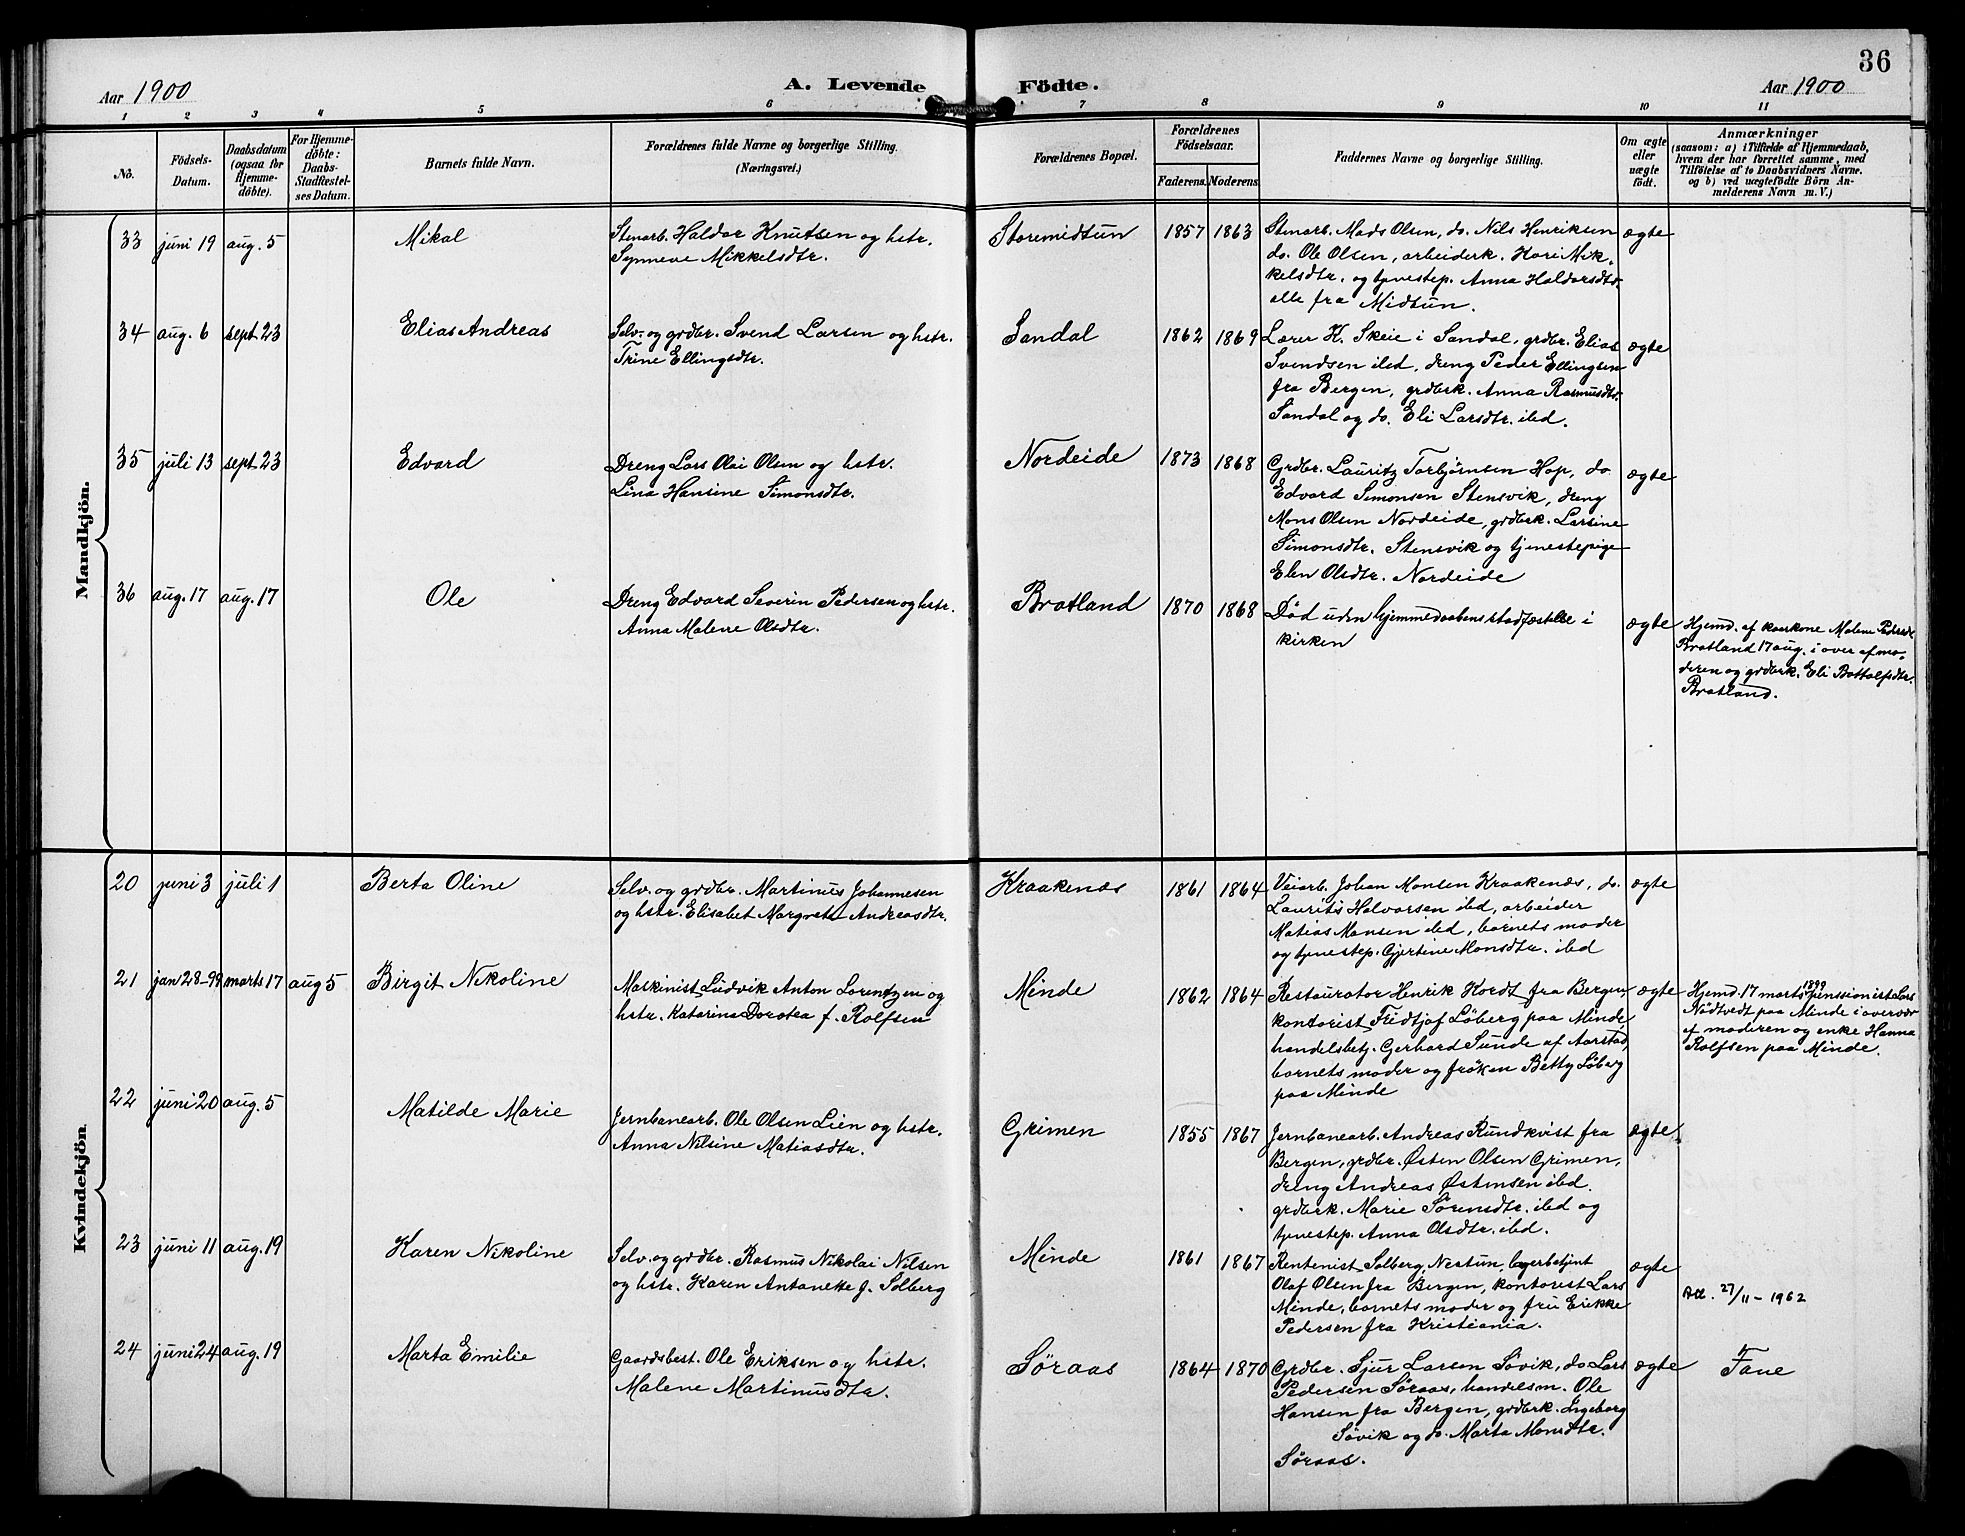 36
Aar 1900
A. Levende Födte.
Aar 1900
1 2 3 4 5 6 7 8 9 10 11
No.
Födsels-Datum.
Daabsdatum (ogsaa for Hjemme-döbte).
For Hjemme-döbte: Daabs-Stadfæstel-ses Datum.
Barnets fulde Navn.
Forældrenes fulde Navne og borgerlige Stilling. (Næringsvei.)
Forældrenes Bopæl.
Forældrenes Födselsaar.
Faderens. Moderens.
Faddernes Navne og borgerlige Stilling.
Om ægte eller uægte födt.
Anmærkninger
(saasom: a) i Tilfælde af Hjemmedaab,
hvem der har forrettet samme, med
Tilföielse af to Daabsvidners Navne.
og b) ved uægtefödte Börn An-
melderens Navn m. V.)
Mandkjön.
33 juni 19 aug. 5 Mikal
Stenarb. Haldor Knutsen og hstr.
Synneve Mikkelsdtr.
Storemidtun 1857 1863
Stenarb. Mads Olsen, do. Nils Henriksen
do. Ole Olsen, arbeiderk. Kari Mik-
kelsdtr. og tjenestep. Anna Haldorsdtr.
alle fra Midtun.
ægte
34 aug. 6 sept 23 Elias Andreas
Selv- og grdbr. Svend Larsen og hstr.
Trine Ellingsdtr.
Sandal 1862 1869
Lærer H. Skeie i Sandal, grdbr. Elias
Svendsen ibd, dreng Peder Ellingsen
fra Bergen, grdbrk. Anna Rasmusdtr.
Sandal og do. Eli Larsdtr. ibd.
ægte
35 juli 13 sept 23 Edvard
Dreng Lars Olai Olsen og hstr.
Lina Hansine Simonsdtr.
Nordeide 1873 1868
Grdbr. Lauritz Torbjørnsen Hop, do
Edvard Simonsen Stensvik, dreng
Mons Olsen Nordeide, grdbrk. Larsine
Simonsdtr. Stensvik og tjenestepige
Elen Olsdtr. Nordeide
ægte
36 aug. 17 aug. 17 Ole
Dreng Edvard Severin Pedersen og hstr.
Anna Malene Olsdtr.
Bratland 1870 1868
Död uden hjemmedaabens stadfæstelse i
kirken
ægte
Hjemd. af kaarkone Malene Pedersdtr
Bratland 17 aug. i over af mo-
deren og grdbrk. Eli Bottolfsdtr.
Bratland.
Kvindekjön.
20 juni 3 juli 1 Berta Oline
Selv. og grdbr. Martinus Johannesen
og hstr. Elisabet Margrete Andreasdtr.
Kraakenæs 1861 1864
Veiarb. Johan Monsen Kraakenæs, do.
Laurits Halvorsen ibd, arbeider
Matias Monsen ibd, barnets moder
og tjenestep. Gjertine Monsdtr. ibd
ægte
21 jan 28-99 marts 17 aug 5 Birgit Nikoline
Maskinist Ludvik Anton Lorentzen og
hstr. Katarina Dorotea f. Rolfsen
Minde 1862 1864
Restauratør Henrik Kordt fra Bergen,
kontorist Fridtjof Løberg paa Minde,
handelsbetj. Gerhard Sunde af Aarstad,
barnets moder og frøken Betty Løberg
paa Minde
ægte
Hjemd. 17 marts 1899 pensionist Lars
Nödtvedt paa Minde i overvær
af moderen og enke Hanna
Rolfsen paa Minde.
22 juni 20 aug. 5 Matilde Marie
Jernbanearb. Ole Olsen Lien og hstr.
Anna Nilsine Matiasdtr.
Grimen 1855 1867
Jernbanearb. Andreas Rundkvist fra
Bergen, grdbr. Østen Olsen Grimen,
dreng Andreas Østensen ibd.
grdbrk. Marie Sörensdtr. ibd og
tjenestep. Anna Olsdtr. ibd.
ægte
23 juni 11 aug. 19 Karen Nikoline
Selv. og grdbr. Rasmus Nikolai Nilsen
og hstr. Karen Antonette f. Solberg
Minde 1861 1867
Rentenist Solberg, Nestun, lagerbetjent
Olaf Olsen fra Bergen, kontorist Lars
Minde, barnets moder og fru Erikke
Pedersen fra Kristiania.
ægte
Att. 27/11-1962
24 juni 24 aug. 19 Marta Emilie
Gaardsbest. Ole Eriksen og hstr.
Malene Martinusdtr.
Søraas 1864 1870
Grdbr. Sjur Larsen Søvik, do Lars
Pedersen Søraas, handelsm. Ole
Hansen fra Bergen, grdbrk. Ingeborg
Søvik og do. Marta Monsdtr.
Søraas.
ægte
Fane